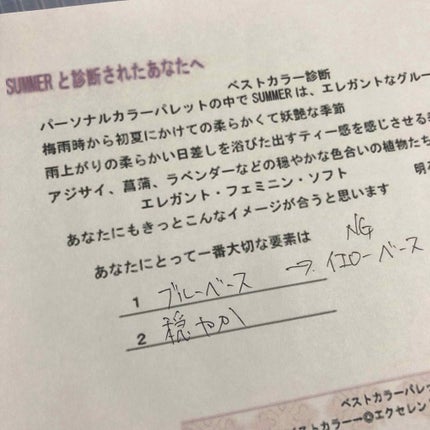 SUMMERと診断されたあなたへ
ベストカラー診断
パーソナルカラーパレットの中でSUMMERは、エレガントなグルー
梅雨時から初夏にかけての柔らかくて妖艶な季節
雨上がりの柔らかい日差しを浴びた出すティー感を感じさせる
アジサイ、菖蒲、ラベンダーなどの穏やかな色合いの植物たち
エレガント・フェミニン・ソフト
明
あなたにもきっとこんなイメージが合うと思います
あなたにとって一番大切な要素は
NG
1 ブルーベース → イエローベース
2 穏やか
ベストカラーパレッ
ストカラー→◎エクセレン